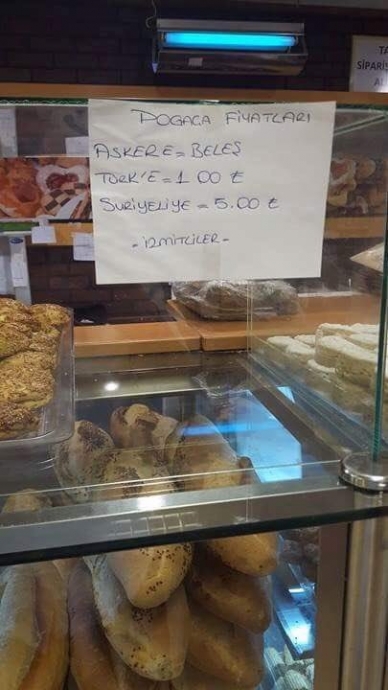 POĞAÇA FİYATLARI
ASKERE = BELEŞ
TÜRK'E = 1.00 ₺
SURİYELİYE = 5.00 ₺
- İZMİTLİLER -
TA
SİPARİŞ